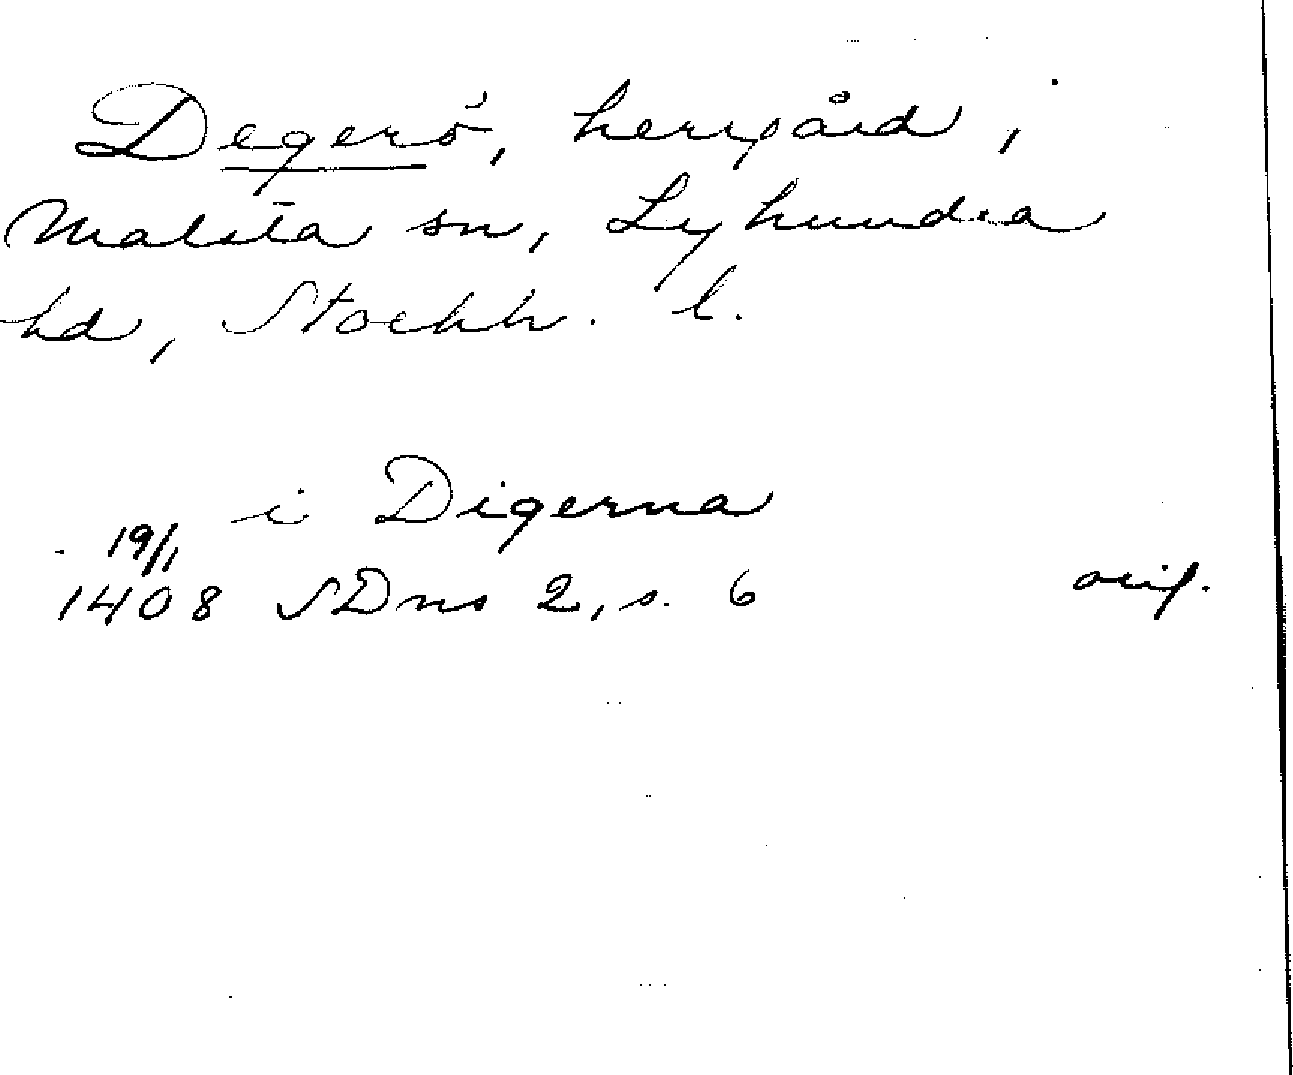 Degerö, herrgård, i
Malsta sn, Lyhundra
hd, Stockh. l.
i Digerna
19/1
1408 SDns 2, s. 6 orig.